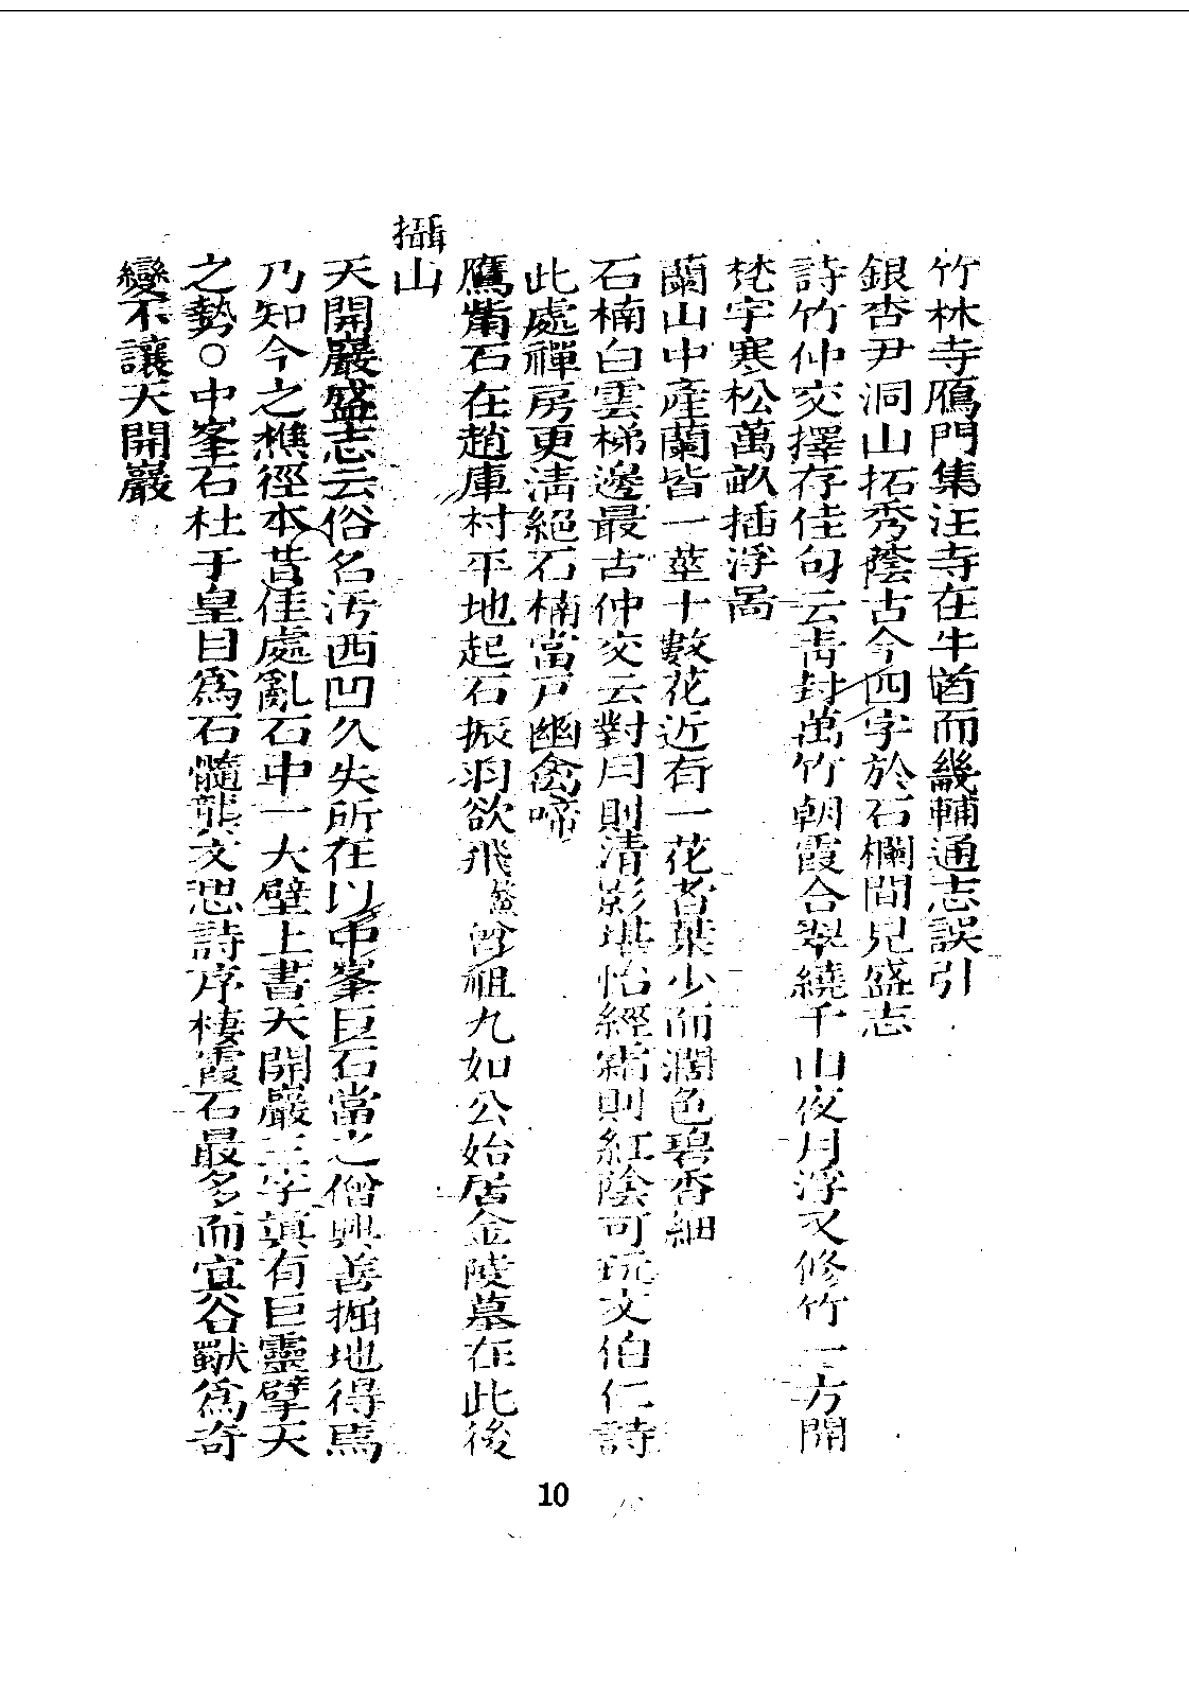 竹林寺鴈門集汪寺在牛首而畿輔通志誤引
銀杏尹洞山拓秀蔭古今四字於石欄間見盛志
詩竹仲交擇存佳句云靑封萬竹朝霞合翠繞千山夜月浮又修竹一方開
梵宇寒松萬畝插浮暠
蘭山中產蘭皆一莖十數花近有一花者葉少而濶色碧香細
石楠白雲梯邊最古仲交云對月則清影堪怡經霜則紅陰可玩文伯仁詩
此處禪房更淸絕石楠當戸幽禽啼
鷹觜石在趙庫村平地起石振羽欲飛 曾祖九如公始居金陵墓在此後
攝山
天開巖盛志云俗名汚西凹久失所在以中峯巨石當之僧興善掘地得焉
乃知今之樵徑本昔佳處亂石中一大壁上書天開巖三字眞有巨靈擘天
之勢○中峯石杜于皇目爲石髓龔文思詩序棲霞石最多而寘谷獸爲奇
變不讓天開巖
10